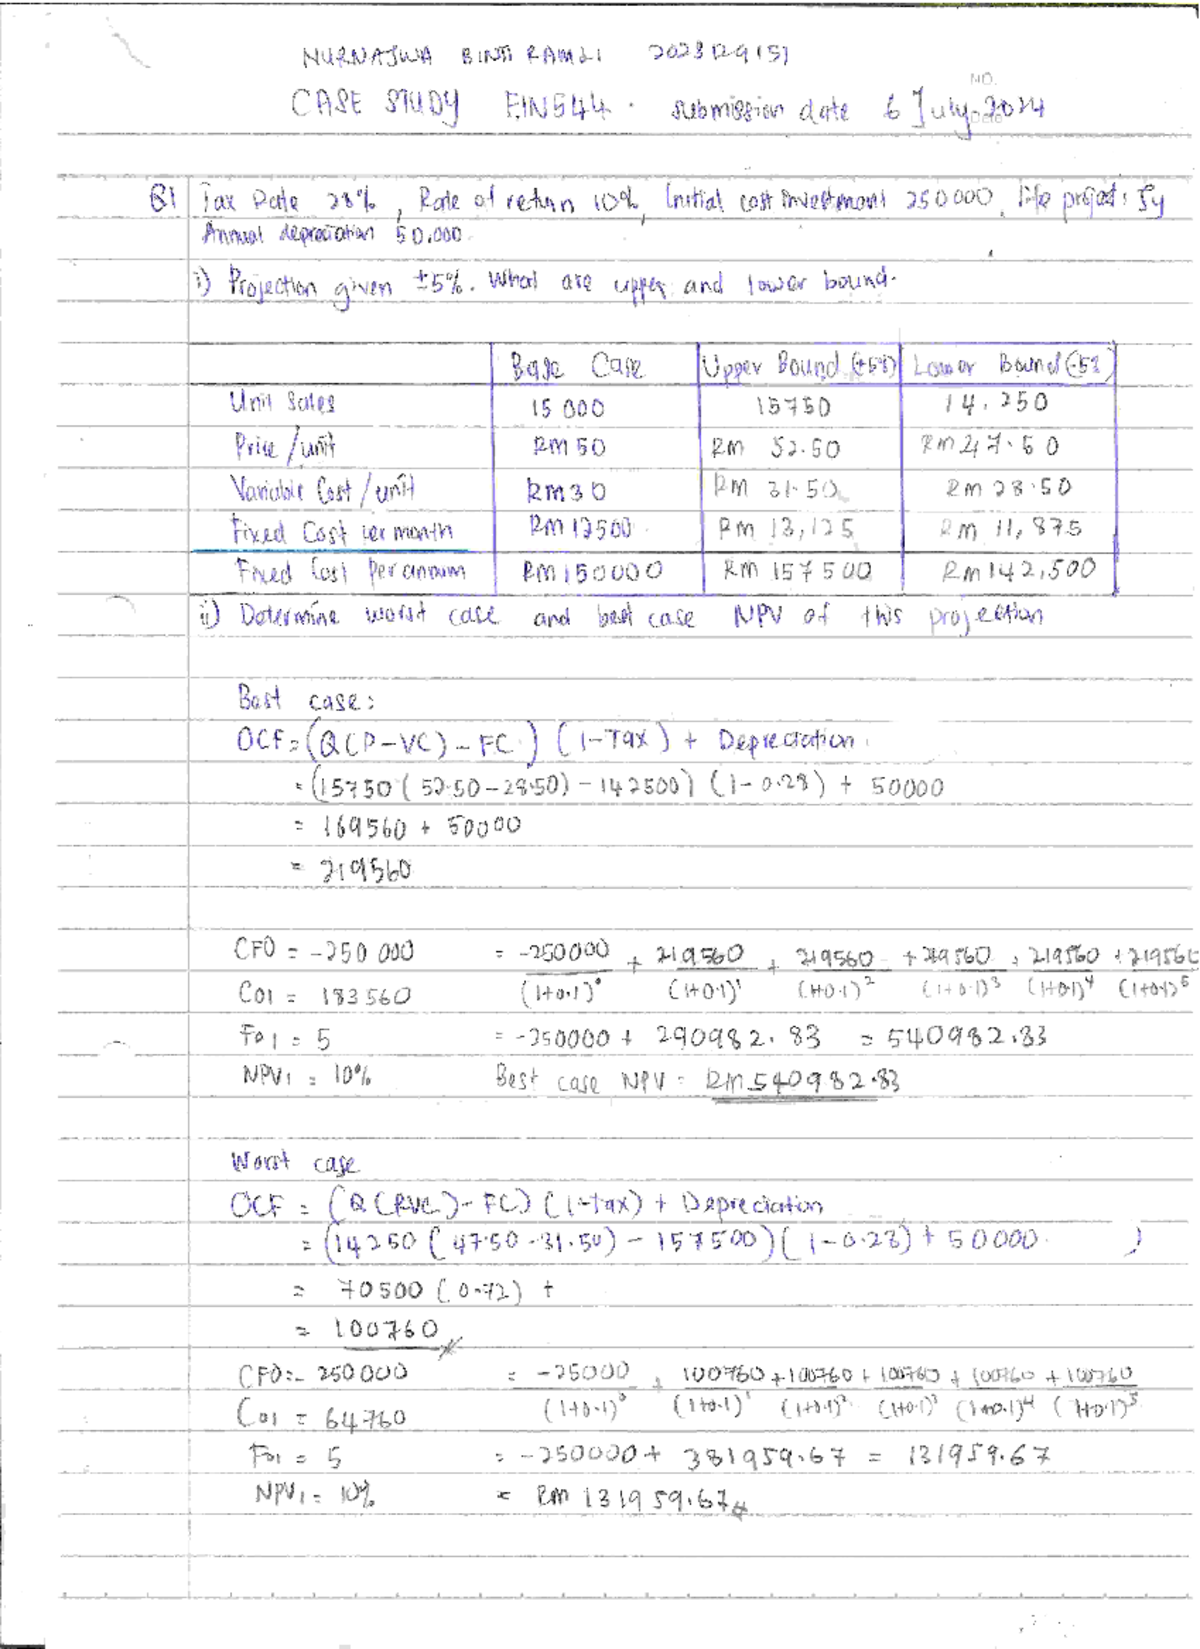 NURNAJWA BINTI RAMLI 2023129157
NO.
CASE STUDY FIN544. submission date 6 July 2024
Q1 Tax Rate 28%, Rate of return 10%, Initial cost investment 250000, life project: 5y
Annual depreciation 50.000.
i) Projection given ±5%. What are upper and lower bound.
Base Case Upper Bound (+5%) Lower Bound (-5%)
Unit Sales 15 000 15750 14,250
Price / unit RM 50 RM 52.50 RM 47.50
Variable Cost / unit RM30 RM 31.50 RM 28.50
Fixed Cost per month RM 12500 RM 13,125 RM 11,875
Fixed Cost Per annum RM 150000 RM 157500 RM 142,500
ii) Determine worst case and best case NPV of this projection
Best case:
OCF = (Q(P-VC) - FC) (1-Tax) + Depreciation
= (15750 (52.50-28.50) - 142500) (1-0.28) + 50000
= 169560 + 50000
= 219560
CF0 = -250 000 = -250000/(1+0.1)⁰ + 219560/(1+0.1)¹ + 219560/(1+0.1)² + 219560/(1+0.1)³ + 219560/(1+0.1)⁴ + 219560/(1+0.1)⁵
C01 = 183560
F01 = 5 = -250000 + 290982.83 = 540982.83
NPV1 = 10% Best case NPV = RM 540982.83
Worst case
OCF = (Q(P-VC) - FC) (1-tax) + Depreciation
= (14250 (47.50-31.50) - 157500) (1-0.28) + 50000
= 70500 (0.72) +
= 100760
CF0 = -250000 = -25000/(1+0.1)⁰ + 100760/(1+0.1)¹ + 100760/(1+0.1)² + 100760/(1+0.1)³ + 100760/(1+0.1)⁴ + 100760/(1+0.1)⁵
C01 = 64760
F01 = 5 = -250000 + 381959.67 = 131959.67
NPV1 = 10% = RM 131959.67